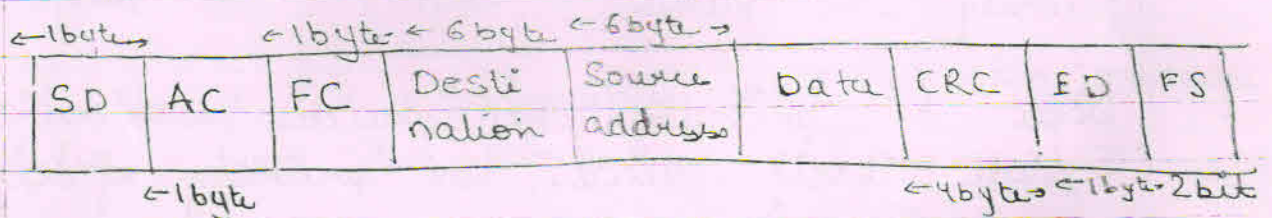 ←1byte→ ←1byte→ ←6byte ←6byte→
SD AC FC Desti nation Source address Data CRC ED FS
←1byte ←4byte→ ←1byte→ 2bit